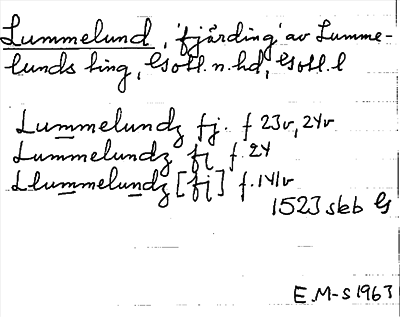 Lummelund, 'fjärding' av Lumme-
lunds ting, Gotl. n. hd, Gotl. l
Lummelundz fj. f 23v, 24v
Lummelundz fj f. 24
Llummelundz [fj] f. 141v
1523 skb G
E M-S 1963